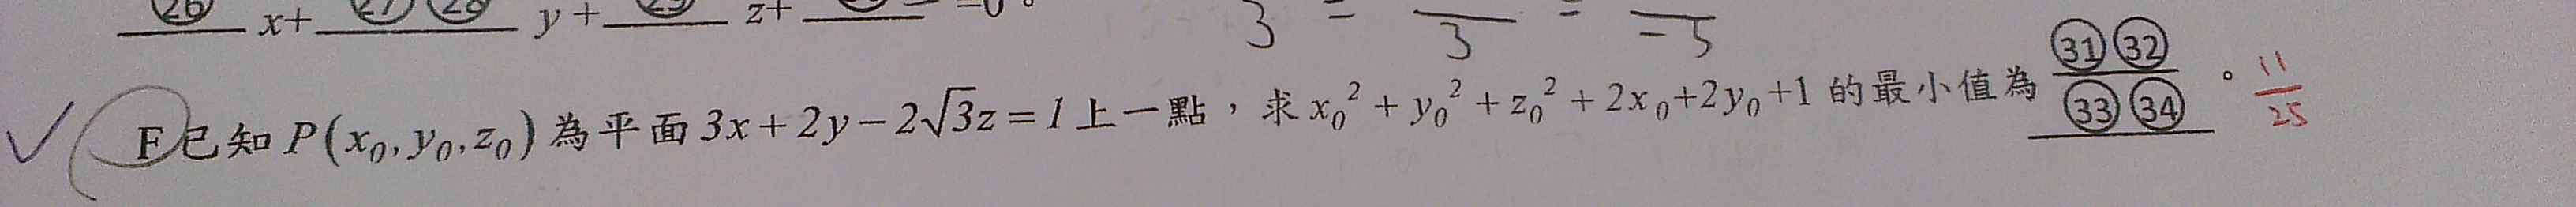 ㉖ x+ ㉗㉘ y+ ㉙ z+ =0。
3 = 3 = -5
F已知 P(x₀, y₀, z₀) 為平面 3x+2y-2√3z=1 上一點，求 x₀²+y₀²+z₀²+2x₀+2y₀+1 的最小值為 ㉛㉜/㉝㉞ 。 11/25